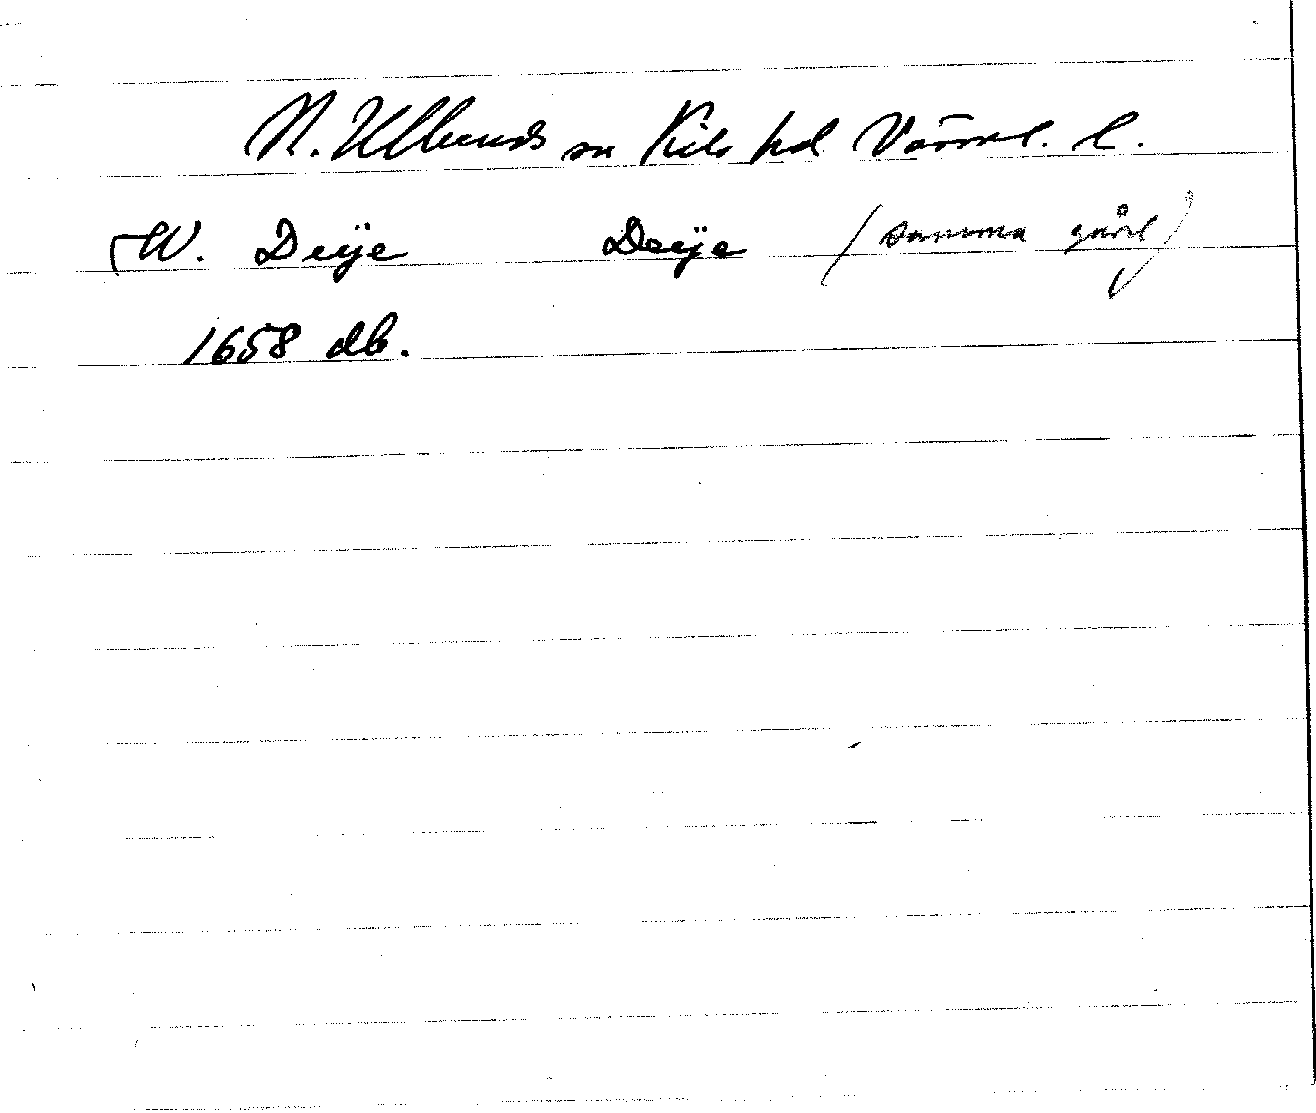 N. Ulleruds sn Kils hd Värml. l.
W. Deije Deije (samma gård)
1658 db.